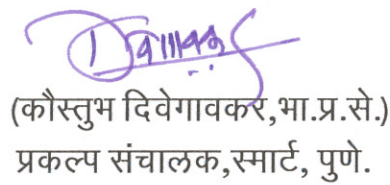 (कौस्तुभ दिवेगावकर,भा.प्र.से.)
प्रकल्प संचालक,स्मार्ट, पुणे.